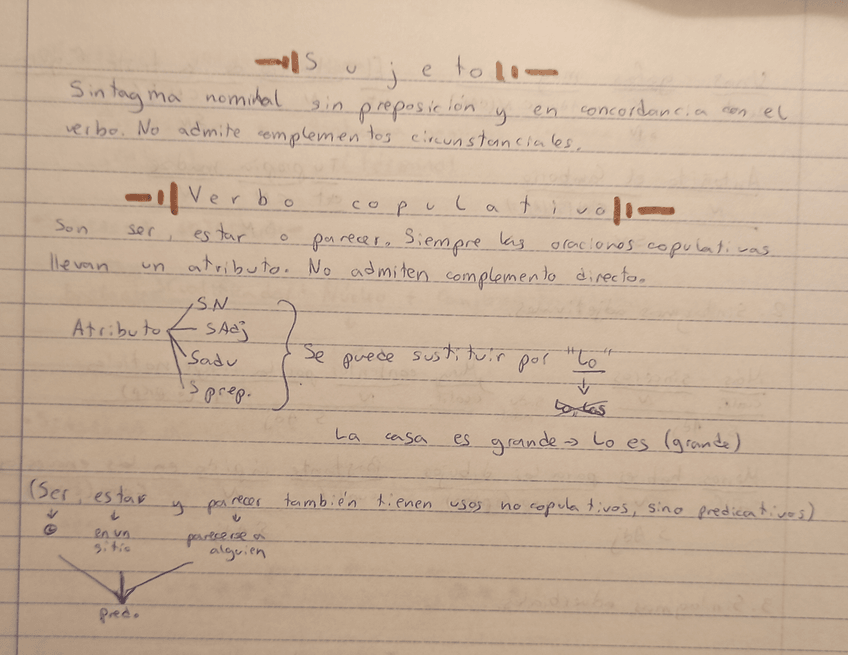 Sujeto
Sintagma nominal sin preposición y en concordancia con el
verbo. No admite complementos circunstanciales.
Verbo copulativo
Son ser, estar o parecer. Siempre las oraciones copulativas
llevan un atributo. No admiten complemento directo.
S.N
Atributo SAdj
Sadv
S prep.
Se puede sustituir por "Lo"
La casa es grande → Lo es (grande)
(Ser, estar y parecer también tienen usos no copulativos, sino predicativos)
en un parecerse a
sitio alguien
pred.